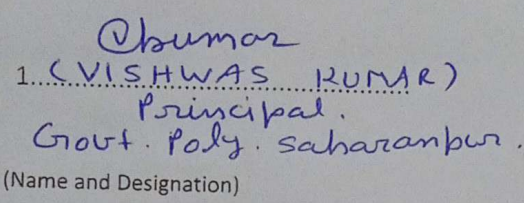 1. (VISHWAS KUMAR)
Principal.
Govt. Poly. Saharanpur.
(Name and Designation)